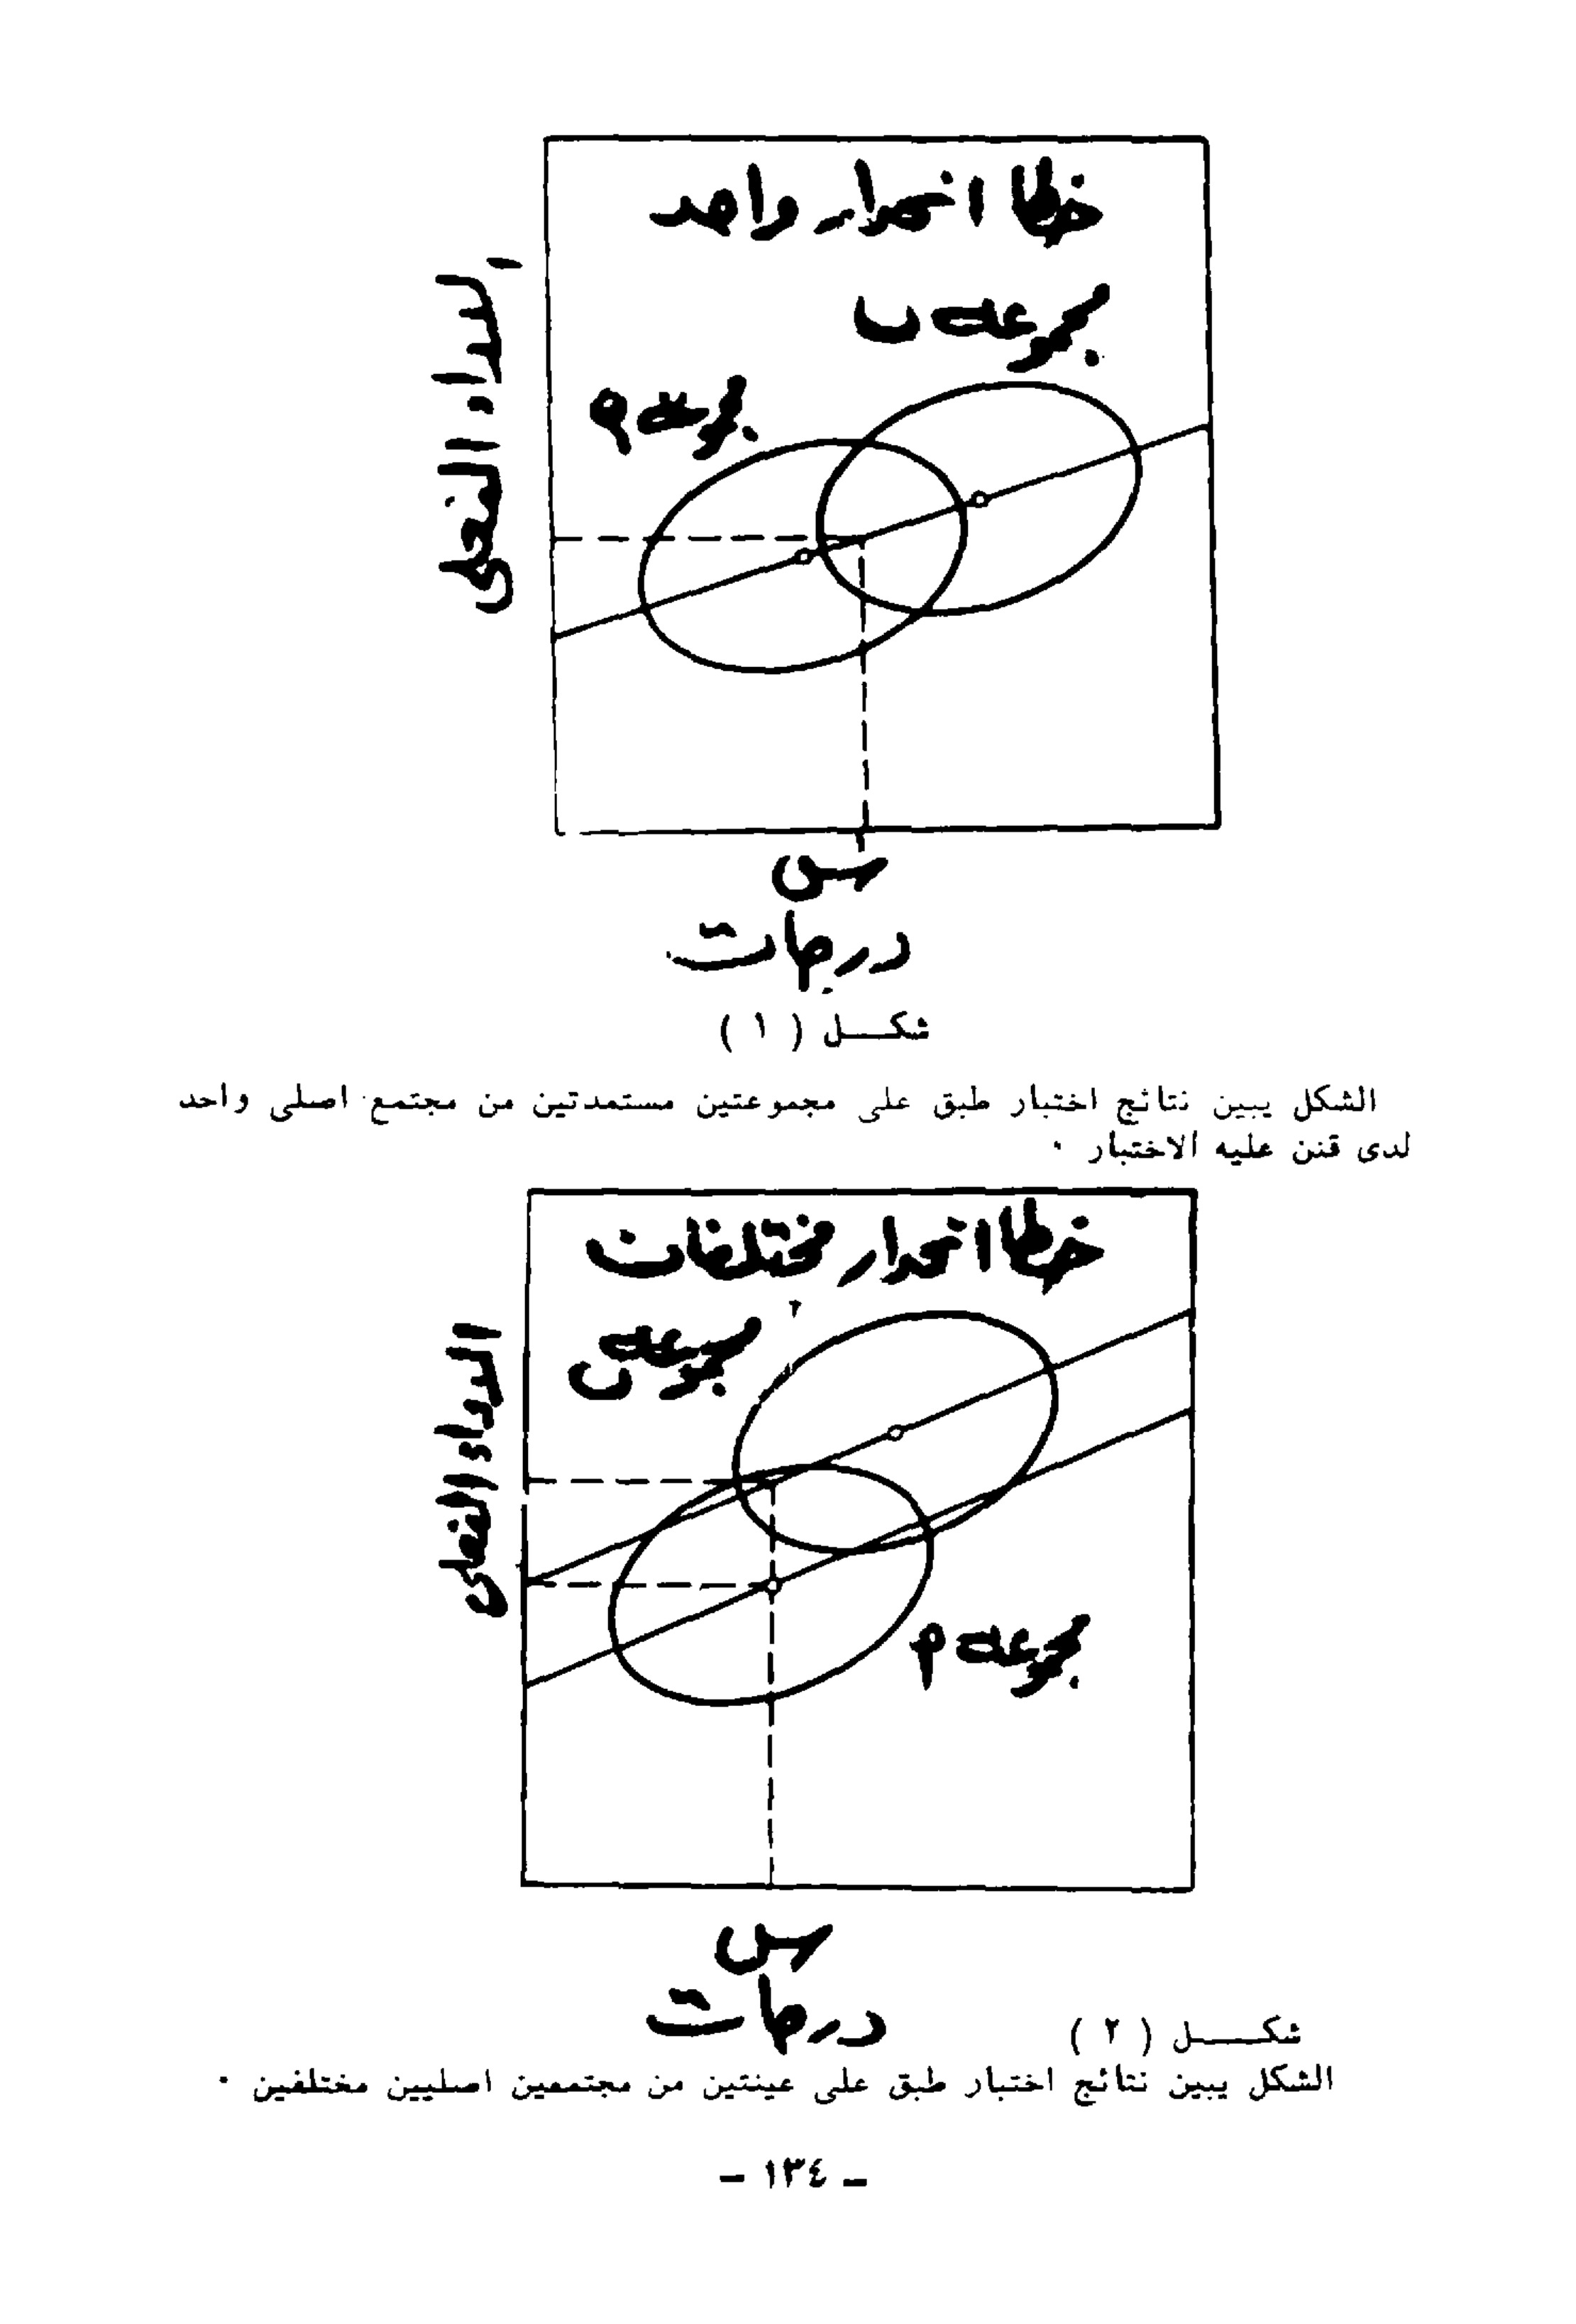 خطا انحدار واحد
مجموعة ب
مجموعة م
الاداء الفعلى
س
درجات
شكــل ( ١ )
الشكل يبين نتائج اختبار طبق على مجموعتين مستمدتين من مجتمع اصلى واحد
لدى قنن عليه الاختبار ٠
خطا انحدار مختلفان
مجموعة ب
الاداء الفعلى
مجموعة م
س
درجات
شكـــل ( ٢ )
الشكل يبين نتائج اختبار طبق على عينتين من مجتمعين اصليين مختلفين ٠
– ١٣٤ –